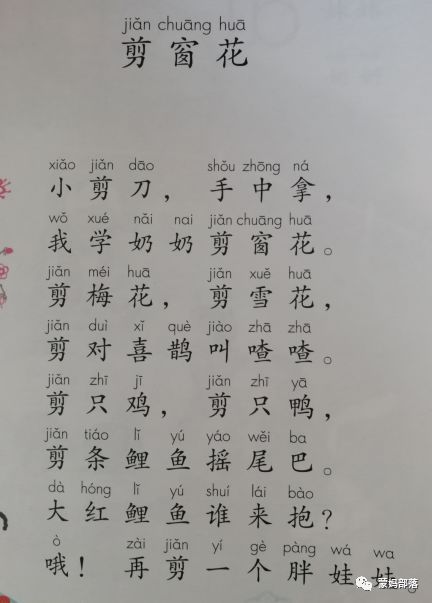 jiǎn chuāng huā
剪窗花
xiǎo jiǎn dāo shǒu zhōng ná
小剪刀，手中拿，
wǒ xué nǎi nai jiǎn chuāng huā
我学奶奶剪窗花。
jiǎn méi huā jiǎn xuě huā
剪梅花，剪雪花，
jiǎn duì xǐ què jiào zhā zhā
剪对喜鹊叫喳喳。
jiǎn zhī jī jiǎn zhī yā
剪只鸡，剪只鸭，
jiǎn tiáo lǐ yú yáo wěi ba
剪条鲤鱼摇尾巴。
dà hóng lǐ yú shuí lái bào
大红鲤鱼谁来抱？
ò zài jiǎn yí gè pàng wá wa
哦！再剪一个胖娃娃。
蒙妈部落